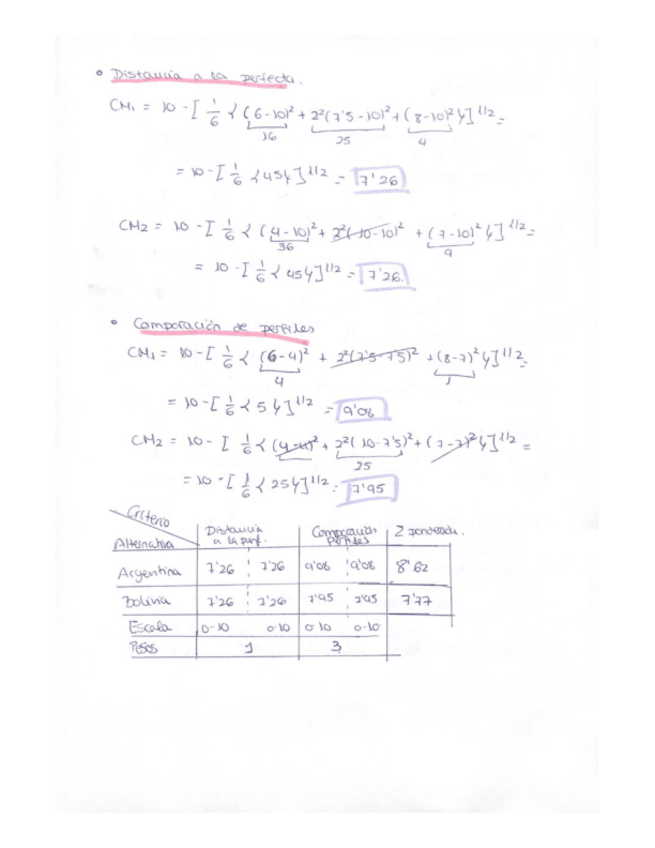 • Distancia a la perfecta.
CM₁ = 10 - [ 1/6 { (6-10)² + 2²(7'5-10)² + (8-10)² } ]^1/2 =
16 25 4
= 10 - [ 1/6 { 45 } ]^1/2 = 7'26
CM2 = 10 - [ 1/6 { (4-10)² + 2²(10-10)² + (7-10)² } ]^1/2 =
36 9
= 10 - [ 1/6 { 45 } ]^1/2 = 7'26.
• Comparación de perfiles
CM₁ = 10 - [ 1/6 { (6-4)² + 2²(7'5-7'5)² + (8-7)² } ]^1/2 =
4 1
= 10 - [ 1/6 { 5 } ]^1/2 = 9'08
CM2 = 10 - [ 1/6 { (4-4)² + 2²(10-7'5)² + (7-7)² } ]^1/2 =
25
= 10 - [ 1/6 { 25 } ]^1/2 = 7'95
Criterio
Alternativa Distancia a la perf. Comparación perfiles Σ ponderada.
Argentina 7'26 7'26 9'08 9'08 8'62
Bolivia 7'26 7'26 7'95 7'95 7'77
Escala 0-10 0-10 0-10 0-10
Pesos 1 3